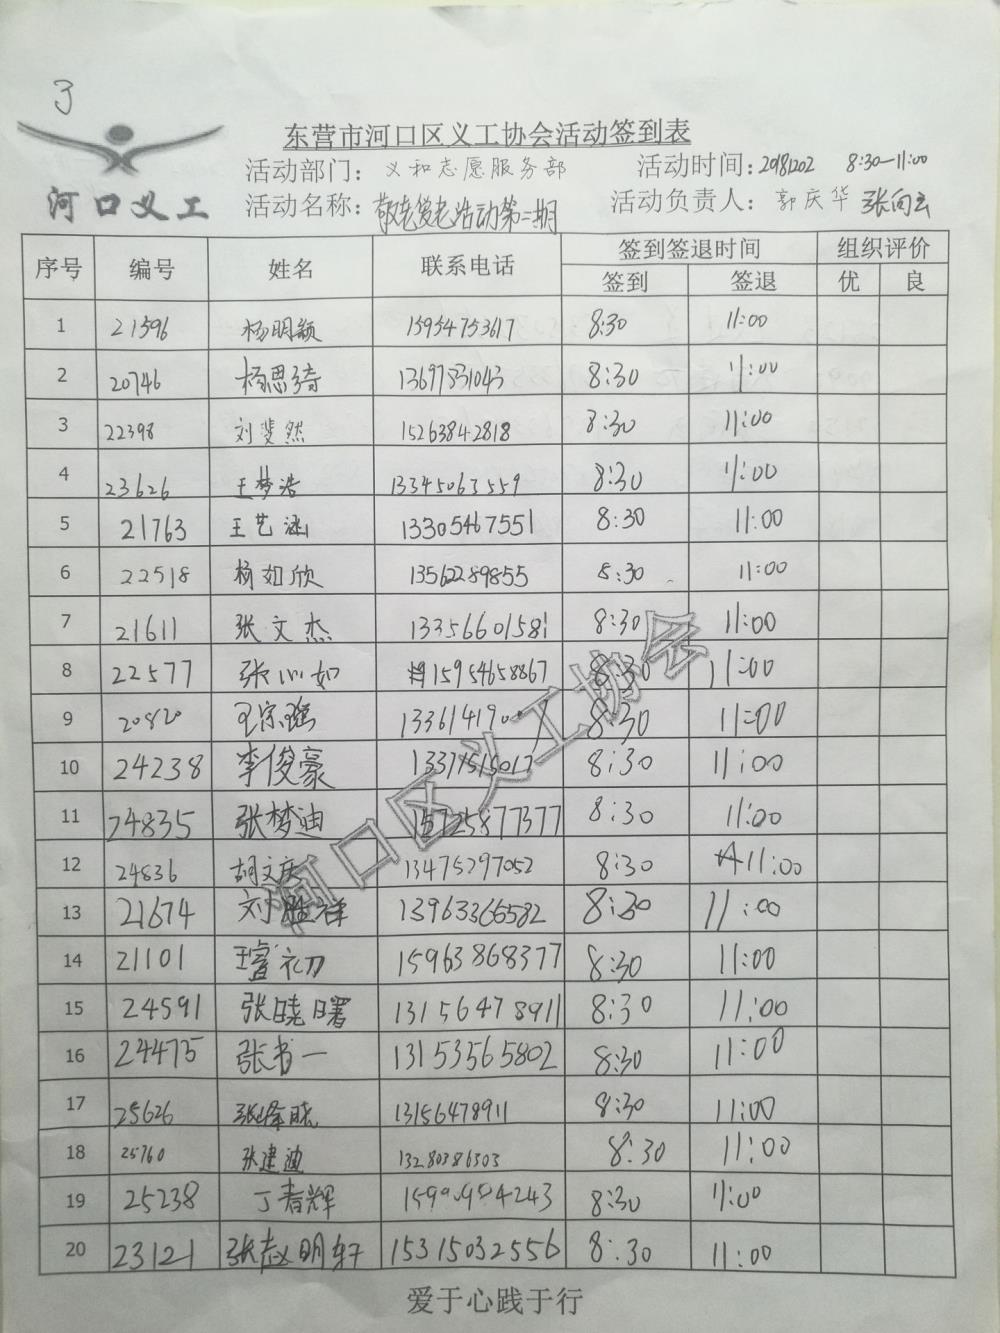 3
东营市河口区义工协会活动签到表
活动部门: 义和志愿服务部 活动时间: 20181202 8:30—11:00
河口义工
活动名称: 敬老爱老活动第二期 活动负责人: 郭庆华 张向云
序号 编号 姓名 联系电话 签到签退时间 组织评价
签到 签退 优 良
1 21596 杨明颖 15954753617 8:30 11:00
2 20746 杨思琦 8:30 11:00
3 22398 刘斐然 15263842818 8:30 11:00
4 23626 王梦浩 13345063559 8:30 11:00
5 21763 王艺涵 13305467551 8:30 11:00
6 22518 杨如欣 13562289855 8:30 11:00
7 21611 张文杰 13356601581 8:30 11:00
8 22577 张心如 15954658867 8:30 11:00
9 20820 王宗瑶 8:30 11:00
10 24238 李俊豪 13371515017 8:30 11:00
11 24835 张梦迪 15725877377 8:30 11:00
12 24836 胡文庆 13475297052 8:30 11:00
13 21674 刘 13963366582 8:30 11:00
14 21101 王睿初 15963868377 8:30 11:00
15 24591 张晓曙 13156478911 8:30 11:00
16 24475 张书一 13153565802 8:30 11:00
17 25626 张 晓 13156478911 8:30 11:00
18 25760 张建迪 13280386303 8:30 11:00
19 25238 丁春辉 8:30 11:00
20 23121 张赵明轩 15315032556 8:30 11:00
河口区义工协会
爱于心践于行